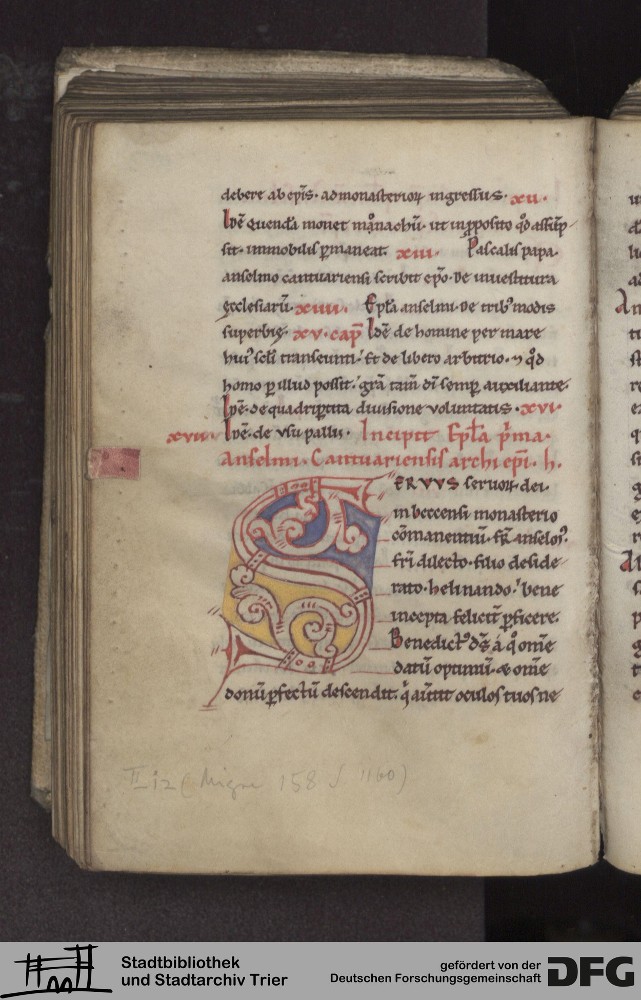 debere ab ep̄is. ad monasterioꝝ ingressus. xii.
Idē quendā monet mo̊nachū. ut in ꝓposito qͦd assūp-
sit. immobilis ꝑmaneat. xiii. Pascalis papa.
anselmo cantuariensi scribit ep̄o. de inuestitura
ęcclesiarū. xiiii. Ep̄la anselmi. de tribꝰ modis
superbię. xv. cap̄ Idē de homine per mare
huiꝰ sc̄li transeunti. et de libero arbitrio. ⁊ qͦd
homo ꝑ illud possit. grā tam̄ dī semꝑ auxiliante.
Idē. de quadriꝑtita diuisione voluntatis. xvi.
xvii. Idē. de usu pallii. Incipit Ep̄la p̄ma.
Anselmi. Cantuariensis archiep̄i. h.
SERVVS seruoꝝ dei.
in beccensi monasterio
cōmanentiū. fr̄ anselmꝰ.
fr̄i dilecto. filio deside-
rato. helinando. bene
incepta felicit̄ ꝑficere.
Benedictꝰ dn̄s. á qͦ om̄e
datū optimū. ⁊ om̄e
donū ꝑfectū descendit. qͥ aꝑuit oculos tuos ne
II 12 (Migne 158 S 1160)
Stadtbibliothek
und Stadtarchiv Trier
gefördert von der
Deutschen Forschungsgemeinschaft
DFG